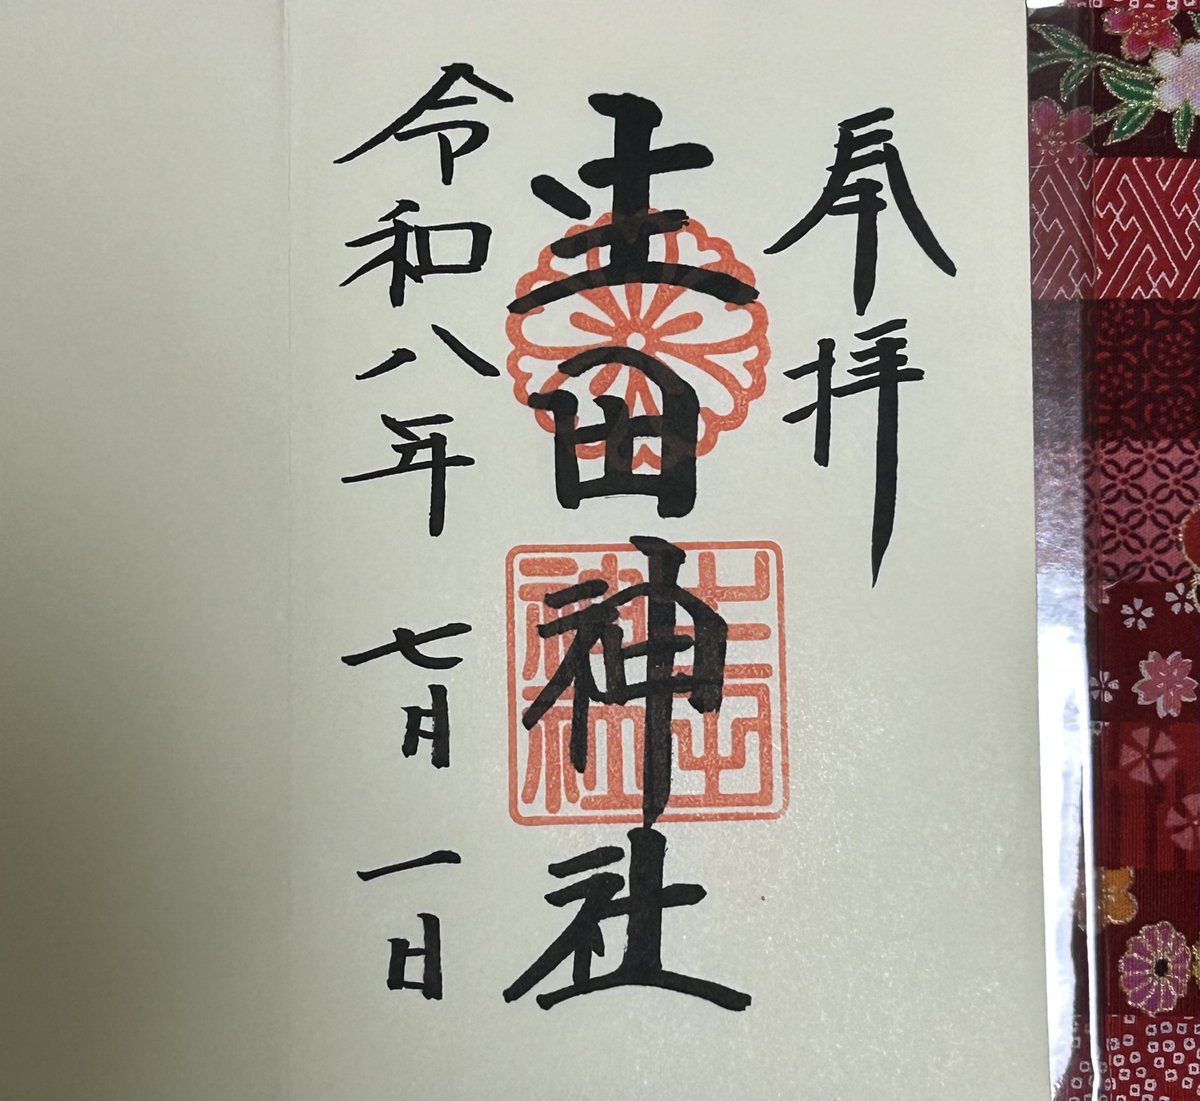 奉拝
生田神社
令和八年七月一日
生田
神社